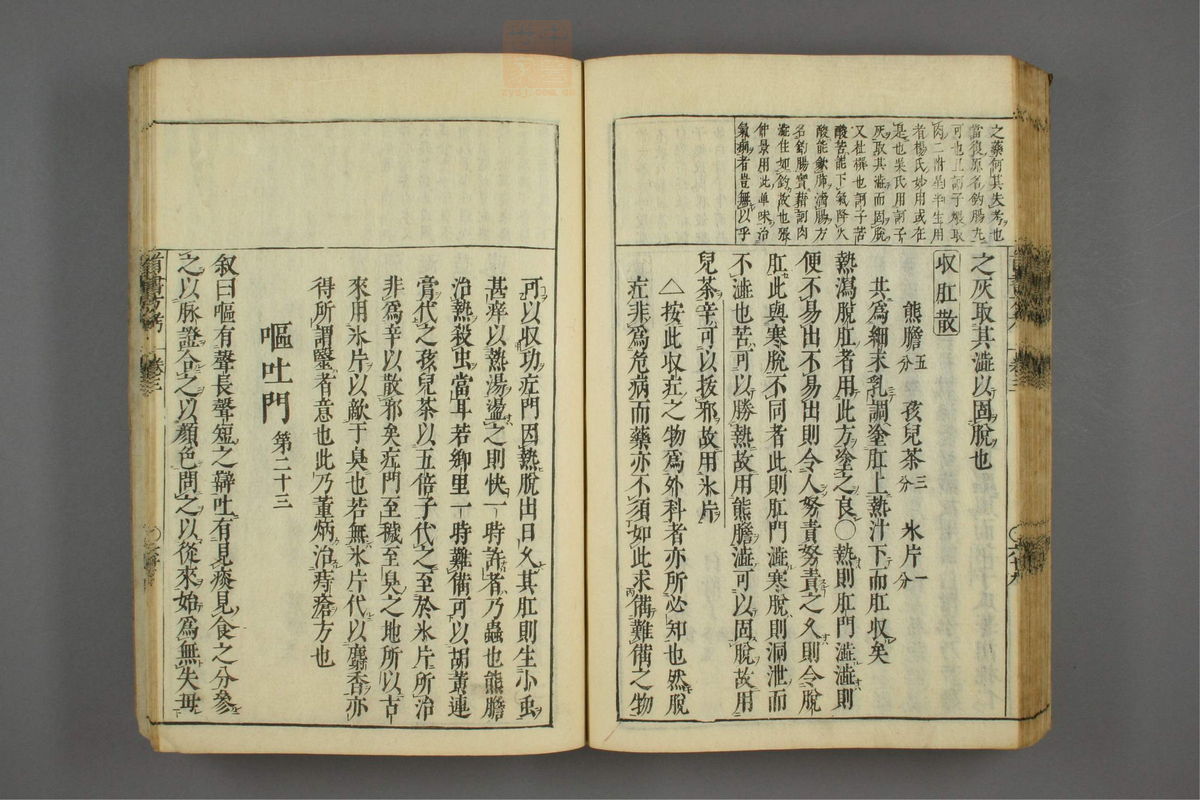 之藥何其失考也
當復原名鈎腸丸
可也且訶子煨取
肉二附星半生用
者楊氏妙用或在
是也吳氏用訶子
灰取其澁而固脫
又杜撰也訶子苦
酸苦能下氣降火
酸能歛肺濇腸方
名鈎腸實藉訶肉
澁住如鈎故也張
仲景用此單味治
氣痢者豈無以乎
之灰取其澁以固脫也
收肛散
熊膽五分 孩兒茶三分 氷片一分
共爲細末乳調塗肛上熱汁下而肛收矣
熱瀉脫肛者用此方塗之良〇熱則肛門澁澁則
便不易出不易出則令人努責努責之久則令脫
肛此與寒脫不同者此則肛門澁寒脫則洞泄而
不澁也苦可以勝熱故用熊膽澁可以固脫故用
兒茶辛可以拔邪故用氷片
△按此收疘之物爲外科者亦所必知也然脫
疘非爲危病而藥亦不須如此求備難備之物
可以收功疘門因熱脫出日久其肛則生小虫
甚痒以熱湯盪之則快一時許者乃蟲也熊膽
治熱殺虫當耳若鄉里一時難備可以胡黃連
膏代之孩兒茶以五倍子代之至於氷片所治
非爲辛以散邪矣疘門至穢至臭之地所以古
來用氷片以敵于臭也若無氷片代以麝香亦
得所謂毉者意也此乃董炳治痔瘡方也
嘔吐門第二十三
叙曰嘔有聲長聲短之辯吐有見痰見食之分參
之以脉證合之以顏色問之以從來始爲無失毋